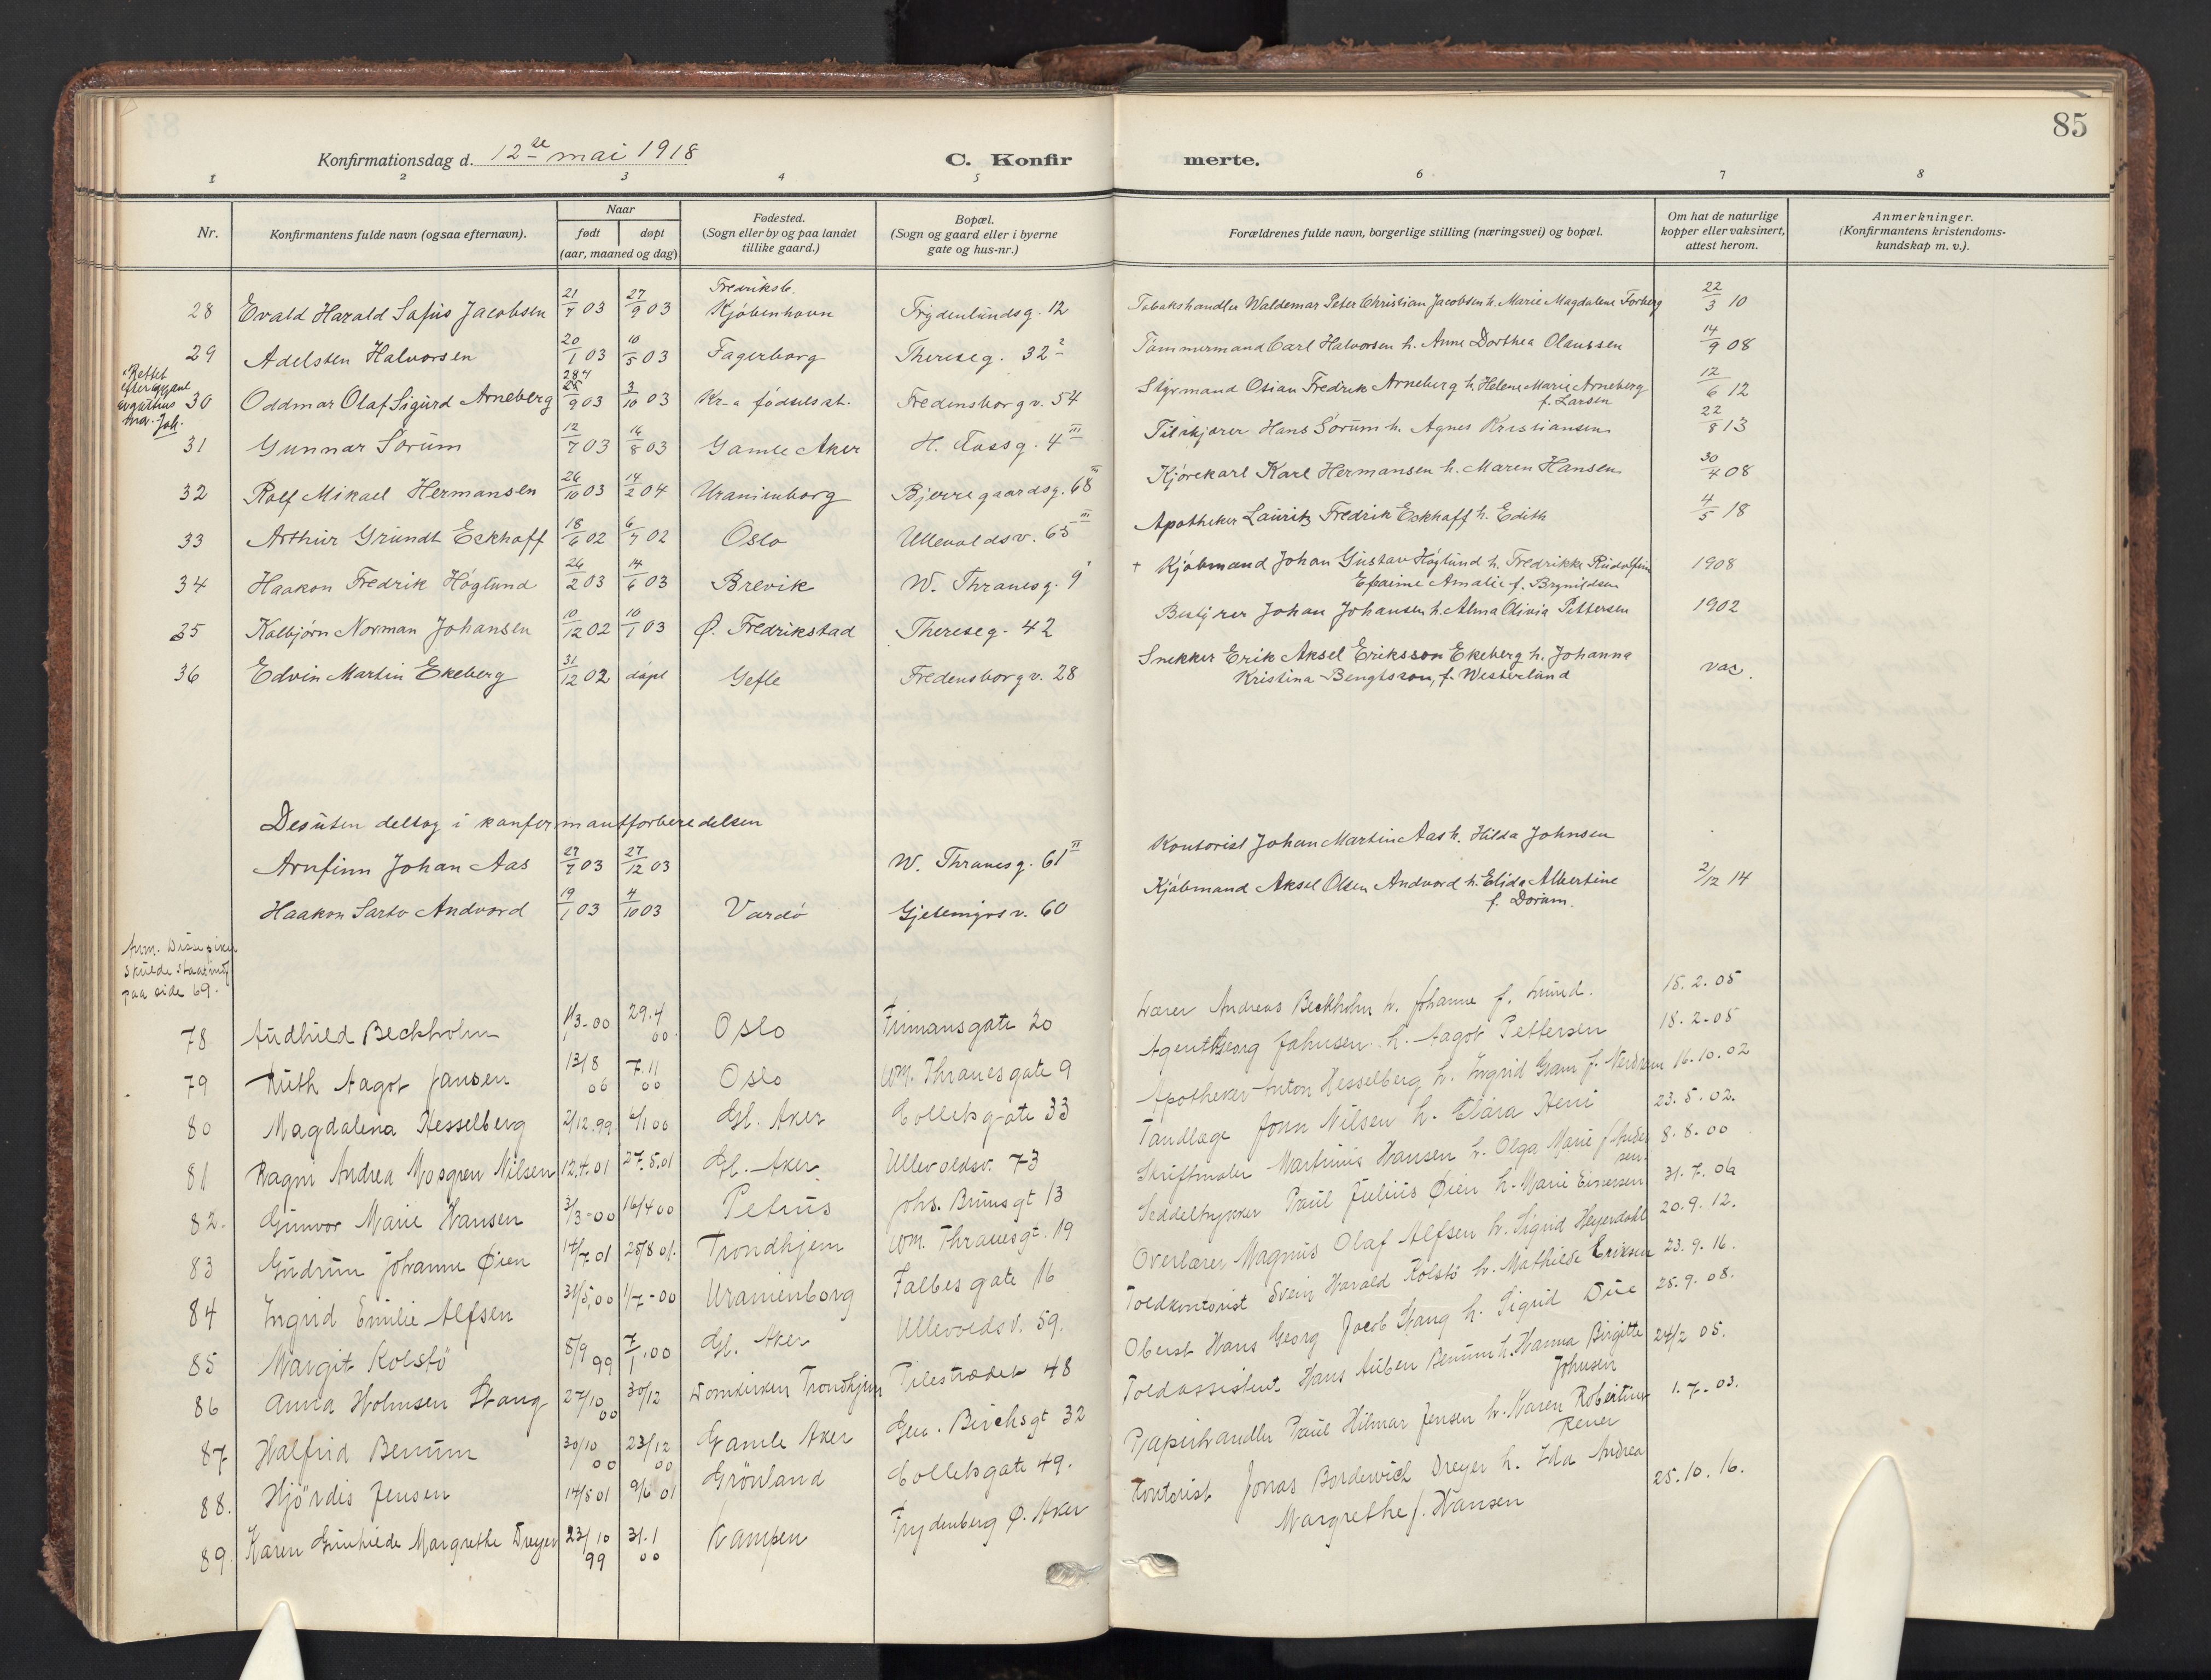 85
Konfirmationsdag d. 12te mai 1918 C. Konfir merte.
1 2 3 4 5 6 7 8
Nr. Konfirmantens fulde navn (ogsaa efternavn). Naar født døpt (aar, maaned og dag) Fødested. (Sogn eller by og paa landet tillike gaard.) Bopæl. (Sogn og gaard eller i byerne gate og hus-nr.) Forældrenes fulde navn, borgerlige stilling (næringsvei) og bopæl. Om hat de naturlige kopper eller vaksinert, attest herom. Anmerkninger. (Konfirmantens kristendoms-kundskap m. v.).
28 Evald Harald Jacobsen 21/7 03 27/9 03 Fredriksb. Kjøbenhavn Frydenlundsg. 12 Tobakshandler Waldemar Peter Christian Jacobsen h. Marie Magdalene Forberg 22/3 10
29 Adelsten Halvorsen 20/1 03 10/5 03 Fagerborg Thereseg. 32 2 Tømmermand Carl Halvorsen h. Anne Dorthea Olaussen 14/9 08
Rettet
30 Oddmar Olaf Sigurd Arneberg 9 03 3/10 03 Kr-a fødselsst. Fredensborgv. 54 Styrmand Osian Fredrik Arneberg h. Helene Marie Arneberg f. Larsen 12/6 12
31 Gunnar Sørum 12/7 03 16/8 03 Gamle Aker H. Aassg. 4 III Tilskjærer Hans Sørum h. Agnes Kristiansen 22/8 13
32 Rolf Mikael Hermansen 26/10 03 14/2 04 Uranienborg Bjerregaardsg. 68 III Kjørekarl Karl Hermansen h. Maren Hansen 30/4 08
33 Arthur Grundt Eckhoff 18/6 02 6/7 02 Oslo Ullevoldsv. 65 III Apotheker Lauritz Fredrik Eckhoff h. Edith 4/5 18
34 Haakon Fredrik Høglund 26/2 03 14/6 03 Brevik W. Thranesg. 9 + Kjøbmand Johan Gustav Høglund h. Fredrikke Rudolfine Amalie f. Brynildsen 1908
35 Kolbjørn Norman Johansen 10/12 02 10/1 03 Ø. Fredrikstad Thereseg. 42 Bestyrer Johan Johansen h. Alma Olivia Pettersen 1902
36 Edvin Martin Ekeberg 31/12 02 døpt Gefle Fredensborgv. 28 Snekker Erik Aksel Eriksson Ekeberg h. Johanna Kristina Bengtsson, f. Westerlund vac.
Desuten deltog i konfirmantforberedelsen
Arnfinn Johan Aas 27/7 03 27/12 03 W. Thranesg. 61 II Kontorist Johan Martin Aas h. Hilda Johnsen
Haakon Andvord 19/1 03 4/10 03 Vardø Gjetemyrsv. 60 Kjøbmand Aksel Olsen Andvord h. Elida Albertine f. Dørum. 2/12 14
Anm. Disse piker
skulde staa
paa side 69.
78 Audhild Beckholm 1/3-00 29.4 00. Oslo Frimansgate 20 Lærer Andreas Beckholm h. Johanne f. Lund. 15.2.05
79 Ruth Aagot Jansen 13/8 00 7.11 00 Oslo Wm. Thranesgate 9 Agent Georg Johnsen h. Aagot Pettersen 18.2-05
80 Magdalena Hesselberg 2/12.99 6/1 00 Gl. Aker Colletsgate 33 Apotheker Anton Hesselberg h. Ingrid Gram f. 16.10.02
81 Ragni Andrea Mosgren Nilsen 12.4.01 27.5.01 Gl. Aker Ullevoldsv. 73 Tandlæge Jonn Nilsen h. Clara 23.5.02.
82. Gunvor Marie Hansen 3/3-00 16/4 00 Petrus Johs. Brunsgt 13 Skriftmaler Martinius Hansen h. Olga Marie f. Andersen. 8.8.00
83 Gudrun Johanne Øien 14/7.01 25/8 01. Trondhjem Wm. Thranesgt. 19 Seddeltrykker Paul Julius Øien h. Marie Einersen 31.7.06
84 Ingrid Emilie Alfsen 31/5.00 1/7-00 Uranienborg Falbesgate 16 Overlærer Magnus Olaf Alfsen h. Sigrid Heyerdahl 20.9.12.
85 Margit Kolstö 5/9 99 7/1.00 Gl. Aker Ullevoldsv. 59. Toldkontorist Svein Harald Kolstö h. Mathilde Eriksen 23.9.16.
86 Anna Holmsen Stang 27/10 00 30/12 Domkirken Trondhjem Pilestrædet 48 Oberst Hans Georg Jacob Stang h. Sigrid Due 25.9.08.
87 Halfrid Berrum 30/10 00 23/12 00 Gamle Aker Gen. Birchsgt 32 Toldassistent Hans Berrum h. Hanna Birgitte Johnsen 24/2 05.
88. Hjördis Jensen 14/5 01 9/6 01 Grönland Colletsgate 49. Papirhandler Paul Hilmar Jensen h. Karen Robertine 1.7.03.
89 Karen Gunhilde Margrethe Dreyer 23/10 99 31.1 00 Kampen Frydenberg Ø. Aker Kontorist Jonas Bordewich Dreyer h. Ida Andrea Margrethe f. Hansen 25.10.16.